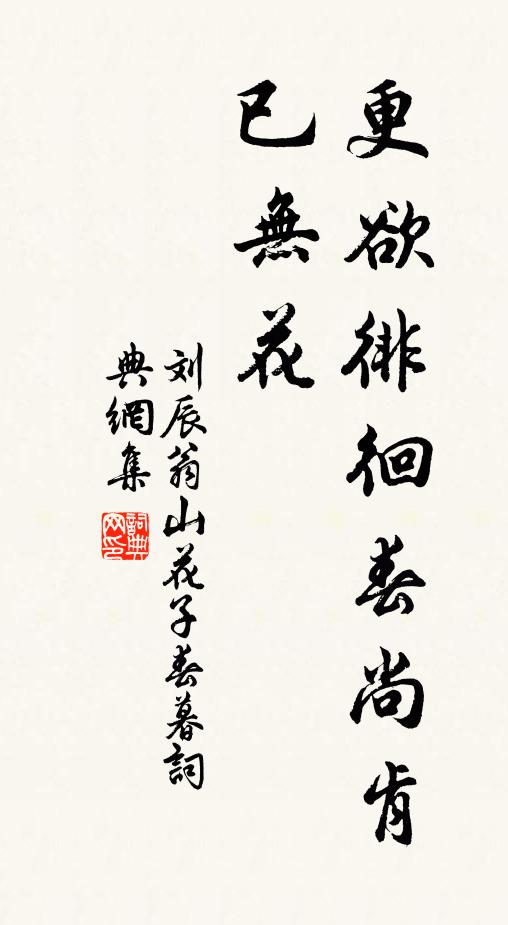 更欲徘徊春尚肯
已無花
刘辰翁山花子春暮詞
典網集
詞典网印